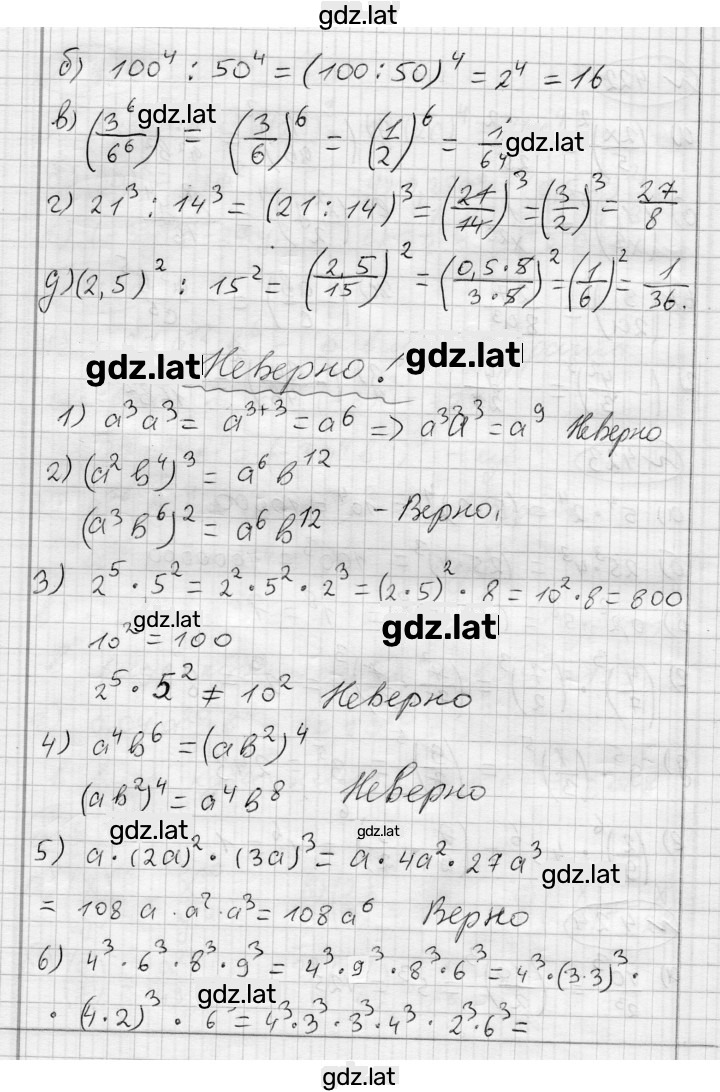 gdz.lat
б) 100⁴ : 50⁴ = (100:50)⁴ = 2⁴ = 16
в) (3⁶/6⁶) = (3/6)⁶ = (1/2)⁶ = 1/64 gdz.lat gdz.lat
г) 21³ : 14³ = (21 : 14)³ = (21/14)³ = (3/2)³ = 27/8
д) (2,5)² : 15² = (2,5/15)² = (0,5·5/3·5)² = (1/6)² = 1/36.
gdz.lat Неверно! gdz.lat
1) a³a³ = a³⁺³ = a⁶ => a³a³ = a⁹ Неверно
2) (a² b⁴)³ = a⁶ b¹²
(a³ b⁶)² = a⁶ b¹² - Верно,
3) 2⁵ · 5² = 2² · 5² · 2³ = (2·5)² · 8 = 10²·8 = 800
gdz.lat gdz.lat
10² = 100
2⁵ · 5² ≠ 10² Неверно
4) a⁴ b⁶ = (ab²)⁴
(ab²)⁴ = a⁴ b⁸ Неверно
gdz.lat gdz.lat
5) a · (2a)² · (3a)³ = a · 4a² · 27a³
gdz.lat
= 108 a · a² · a³ = 108 a⁶ Верно
6) 4³ · 6³ · 8³ · 9³ = 4³ · 9³ · 8³ · 6³ = 4³ · (3·3)³ ·
gdz.lat
· (4·2)³ · 6³ = 4³·3³·3³·4³ · 2³·6³ =
gdz.lat